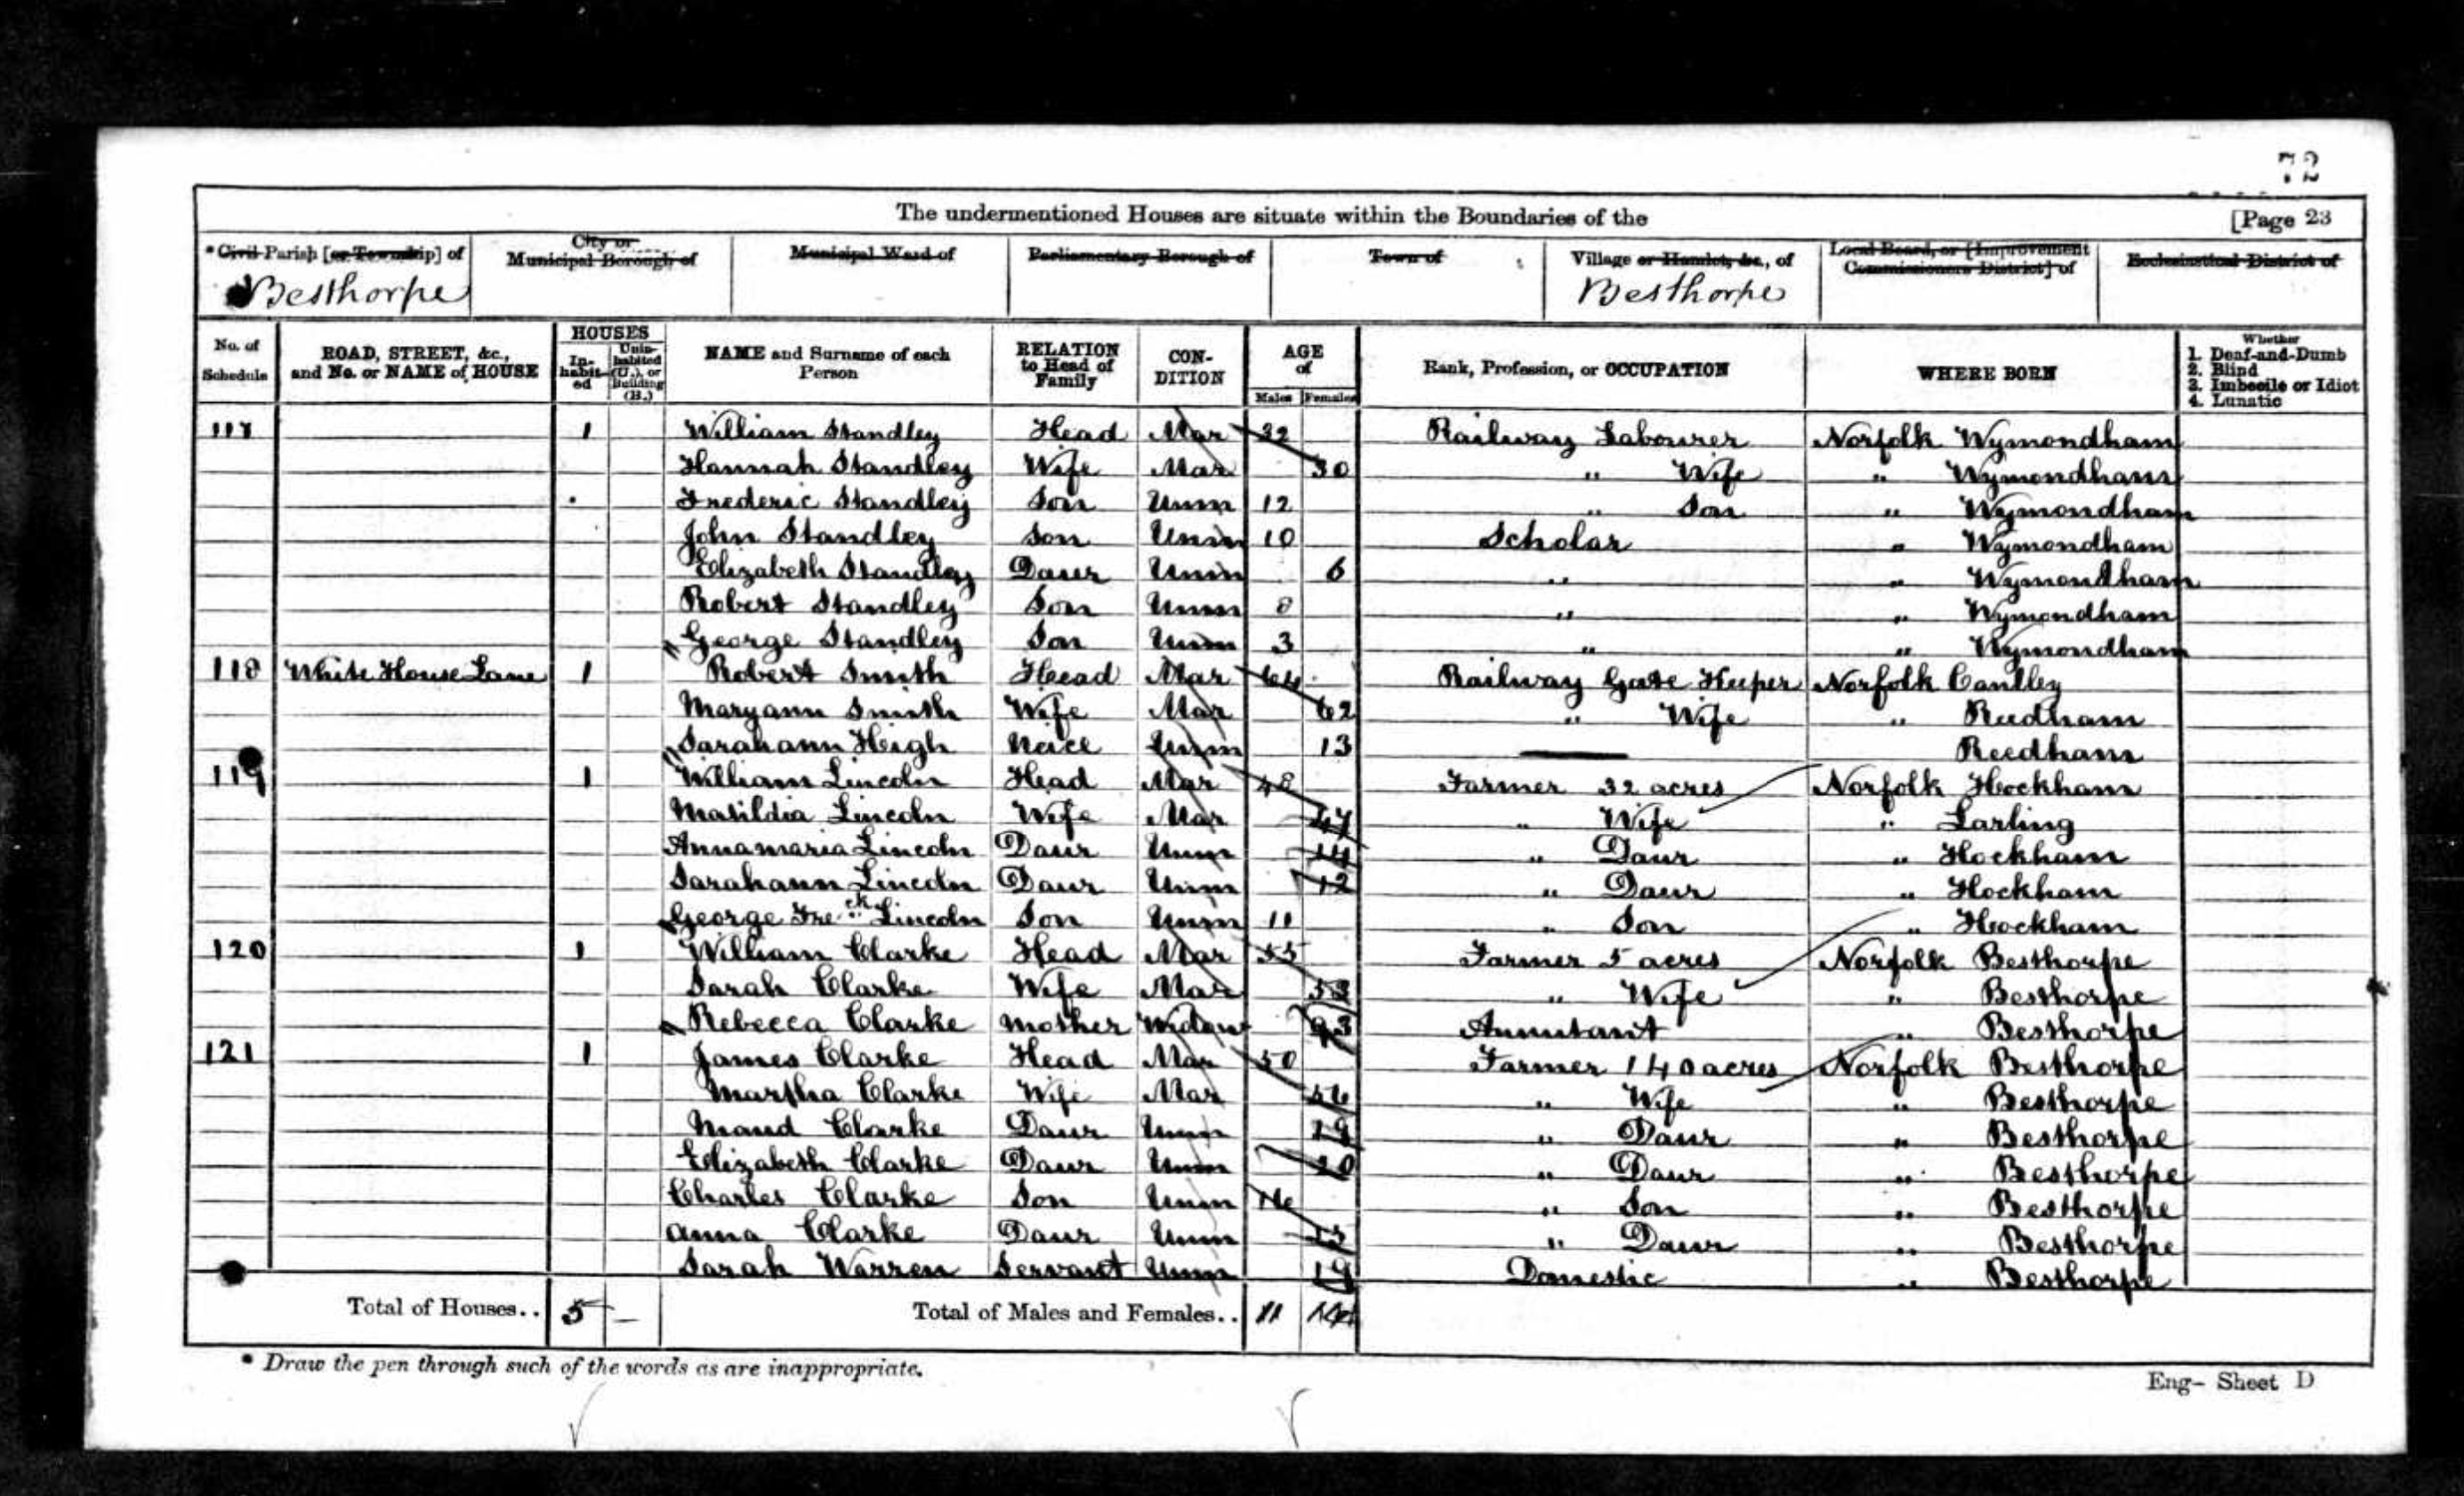 72
The undermentioned Houses are situate within the Boundaries of the [Page 23
* Civil Parish [or Township] of City or Municipal Borough of Municipal Ward of Parliamentary Borough of Town of Village or Hamlet, &c., of Local Board, or [Improvement Commissioners District] of Ecclesiastical District of
Besthorpe Besthorpe
No. of Schedule ROAD, STREET, &c., and No. or NAME of HOUSE HOUSES In-habit-ed Unin-habited (U.), or Building (B.) NAME and Surname of each Person RELATION to Head of Family CON-DITION AGE of Males Females Rank, Profession, or OCCUPATION WHERE BORN Whether 1. Deaf-and-Dumb 2. Blind 3. Imbecile or Idiot 4. Lunatic
117 1 William Standley Head Mar 32 Railway Labourer Norfolk Wymondham
Hannah Standley Wife Mar 30 " Wife " Wymondham
Frederic Standley Son Unm 12 " Son " Wymondham
John Standley Son Unm 10 Scholar " Wymondham
Elizabeth Standley Daur Unm 6 " " Wymondham
Robert Standley Son Unm 8 " " Wymondham
George Standley Son Unm 3 " " Wymondham
118 White House Lane 1 Robert Smith Head Mar 64 Railway Gate Keeper Norfolk Cantley
Maryann Smith Wife Mar 62 " Wife " Reedham
Sarahann Heigh Neice Unm 13 Reedham
119 1 William Lincoln Head Mar 48 Farmer 32 acres Norfolk Hockham
Matildia Lincoln Wife Mar 47 " Wife " Larling
Annamaria Lincoln Daur Unm 14 " Daur " Hockham
Sarahann Lincoln Daur Unm 12 " Daur " Hockham
George Fre"ck Lincoln Son Unm 11 " Son " Hockham
120 1 William Clarke Head Mar 55 Farmer 5 acres Norfolk Besthorpe
Sarah Clarke Wife Mar 53 " Wife " Besthorpe
Rebecca Clarke Mother Widow 93 Annutant " Besthorpe
121 1 James Clarke Head Mar 50 Farmer 140 acres Norfolk Besthorpe
Martha Clarke Wife Mar 56 " Wife " Besthorpe
Maud Clarke Daur Unm " Daur " Besthorpe
Elizabeth Clarke Daur Unm 20 " Daur " Besthorpe
Charles Clarke Son Unm 16 " Son " Besthorpe
Anna Clarke Daur Unm 13 " Daur " Besthorpe
Sarah Warren Servant Unm 19 Domestic " Besthorpe
Total of Houses.. 5 — Total of Males and Females.. 11 14
* Draw the pen through such of the words as are inappropriate.
Eng- Sheet D